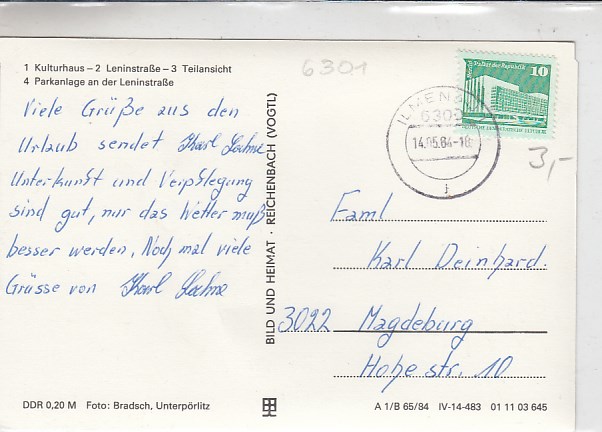 1 Kulturhaus – 2 Leninstraße – 3 Teilansicht
4 Parkanlage an der Leninstraße
6301
Viele Grüße aus den
Urlaub sendet Karl
Unterkunft und Verpflegung
sind gut, nur das Wetter muß
besser werden. Noch mal viele
Grüsse von Karl
BILD UND HEIMAT · REICHENBACH (VOGTL)
Palast der Republik 10
ILMENAU
6300
14.05.84-18
3,-
Faml
Karl Deinhard.
3022 Magdeburg
Hohe str. 10
DDR 0,20 M Foto: Bradsch, Unterpörlitz
A 1/B 65/84 IV-14-483 01 11 03 645